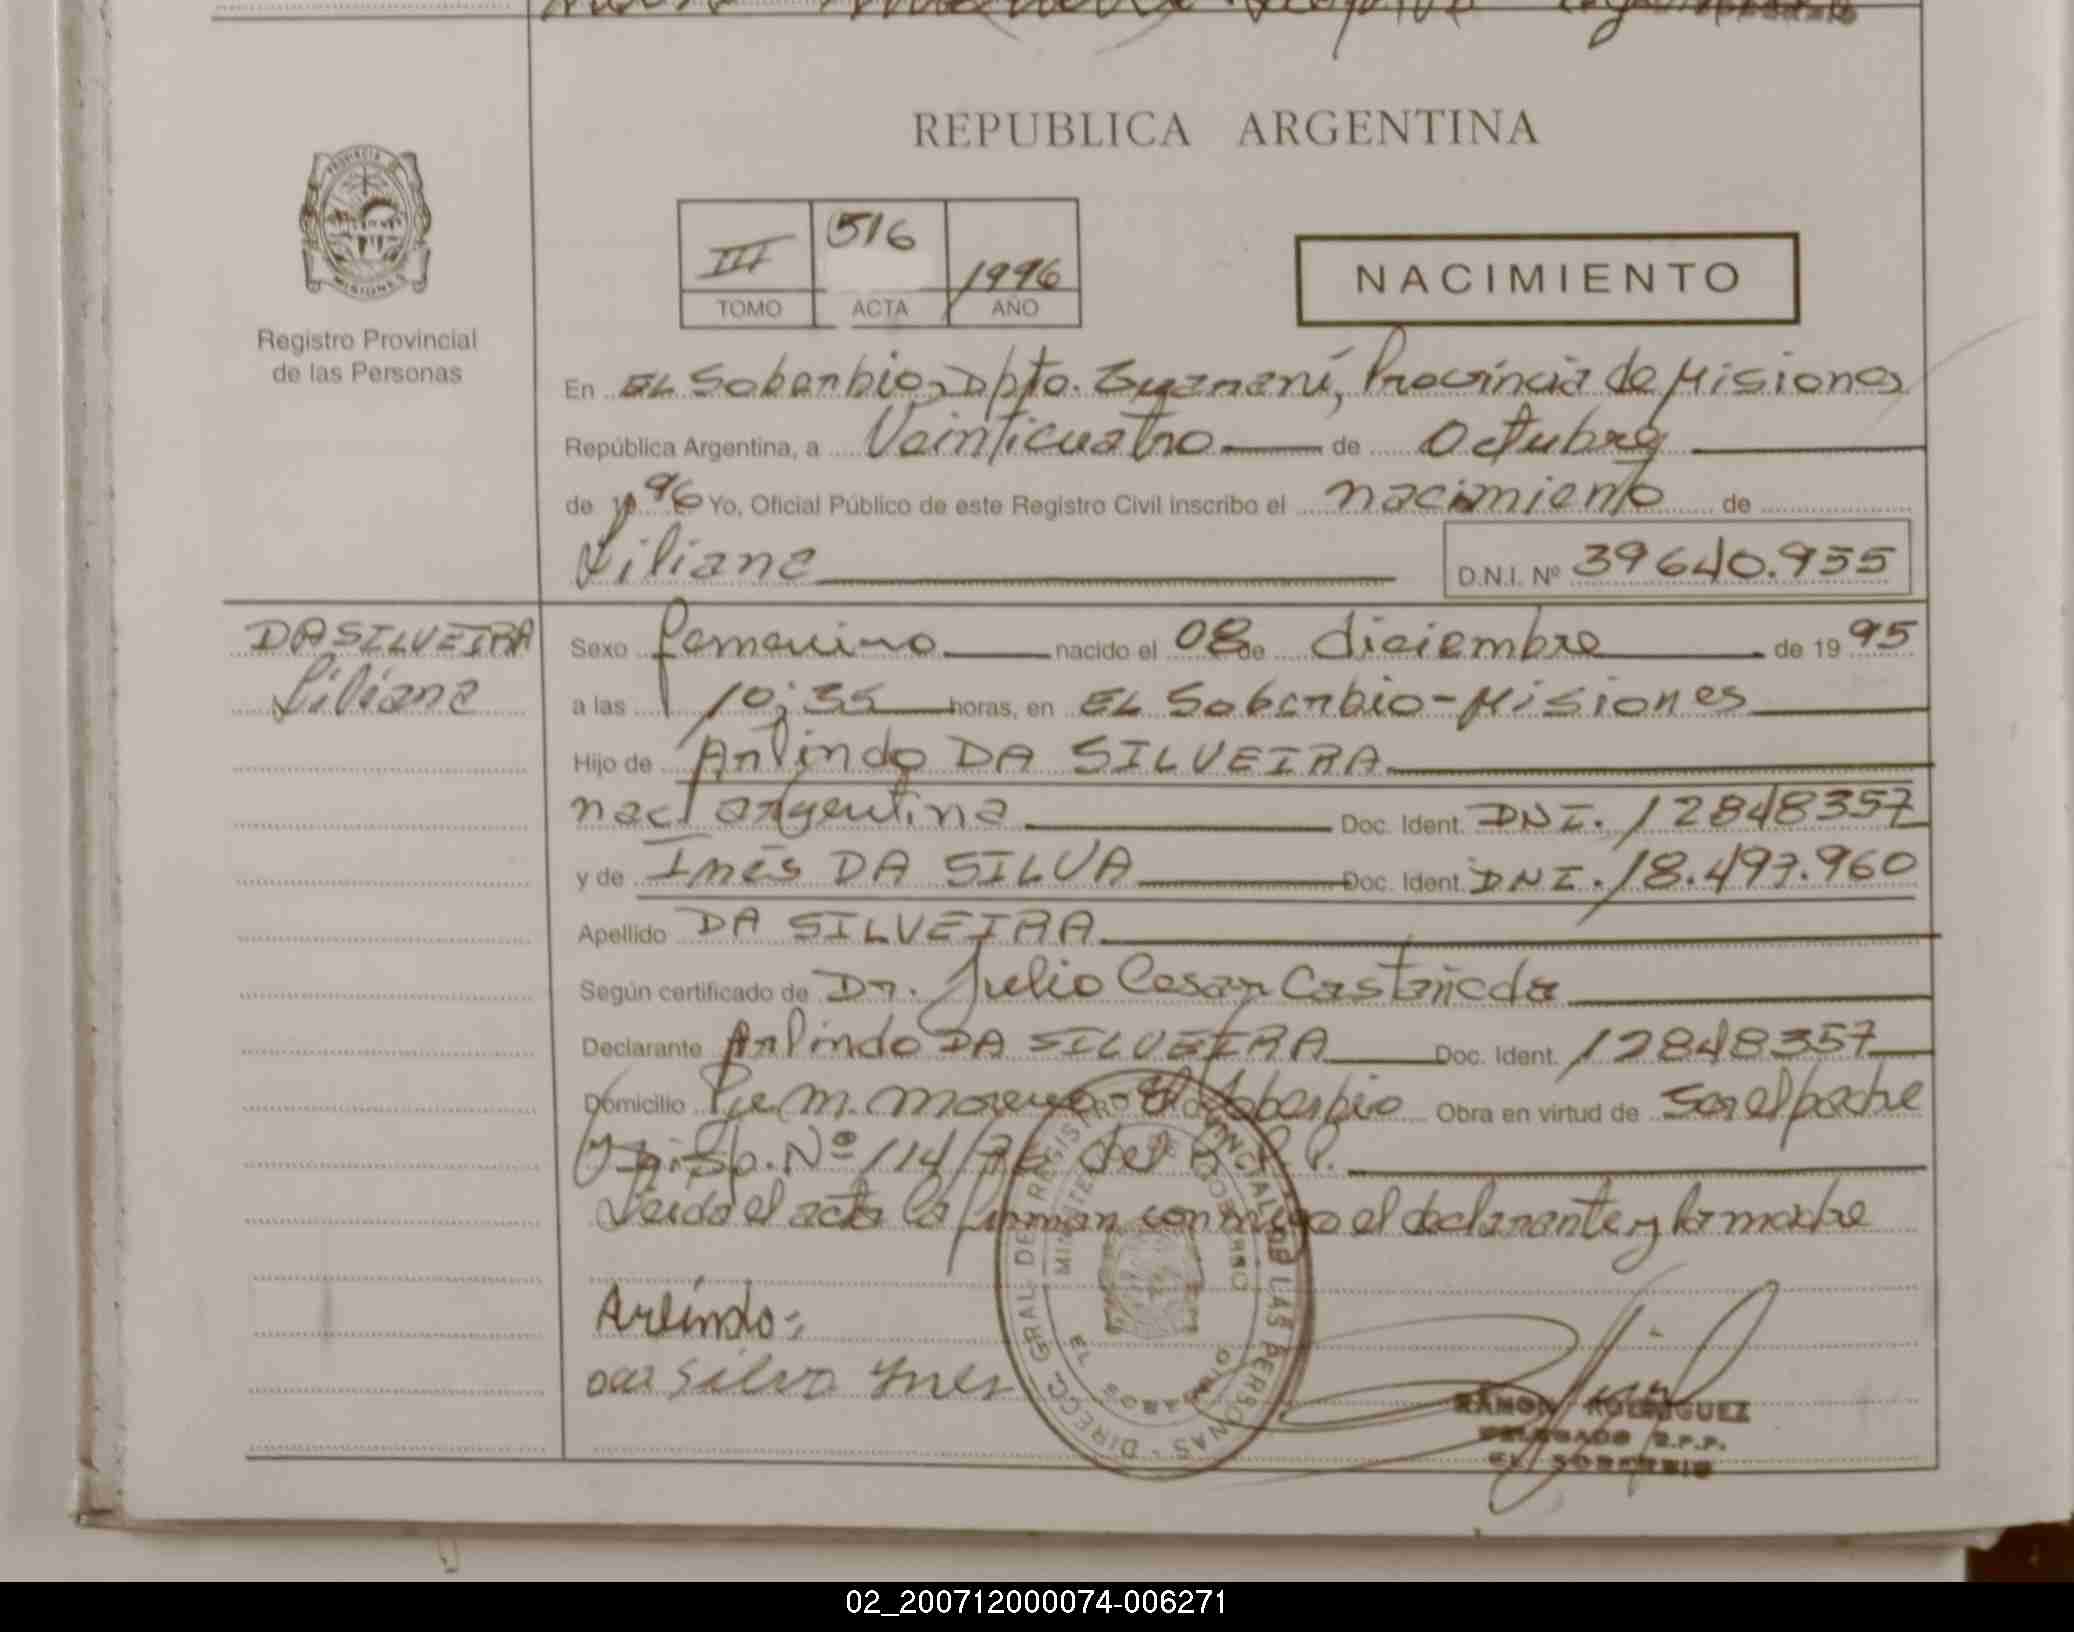 REPUBLICA ARGENTINA
PROVINCIA DE
MISIONES
Registro Provincial
de las Personas
III 516 1996
TOMO ACTA AÑO
NACIMIENTO
En EL Soberbio, Dpto. Guaraní, Provincia de Misiones
República Argentina, a Veinticuatro de Octubre
de 1996 Yo, Oficial Público de este Registro Civil inscribo el nacimiento de
Liliana D.N.I. Nº 39640.955
DA SILVEIRA
Liliana
Sexo femenino nacido el 08 de diciembre de 1995
a las 10:35 horas, en EL Soberbio-Misiones
Hijo de Arlindo DA SILVEIRA
nac/ argentina Doc. Ident. DNI. 12848357
y de Inés DA SILVA Doc. Ident. DNI. 18.497.960
Apellido DA SILVEIRA
Según certificado de Dr. Julio Cesar Castañeda
Declarante Arlindo DA SILVEIRA Doc. Ident. 12848357
Domicilio Pje M. Moreno - El Soberbio Obra en virtud de Ser el padre
y Disp. Nº 114/ del R.P.P.
Leida el acta la firman conmigo el declarante y la madre
Arlindo
da silva Ynes
DIRECC. GRAL. DE REGISTRO PROVINCIAL DE LAS PERSONAS
MINISTERIO DE GOBIERNO
EL SOBERBIO
RAMON RODRIGUEZ
DELEGADO R.P.P.
EL SOBERBIO
02_200712000074-006271